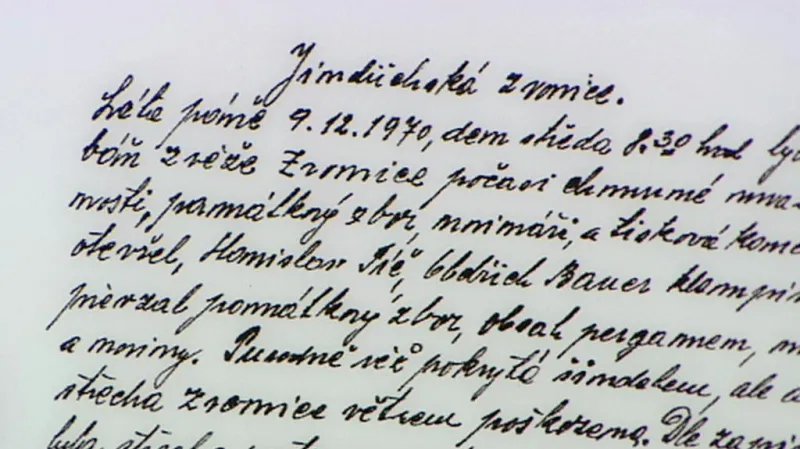 Jindřichská zvonice.
Léta páně 9.12.1970, dem středa 8.30 hod
báň z věže Zvonice počasí chmurné
nosti, památkný zbor, novináři, a tisková
otevřel, Stanislav Píč, Oldřich Bauer
památkný zbor, obsah pergamem,
a noviny. Puvodně věž pokrytá šindelem, ale
střecha Zvonice větrem poškozena. Dle